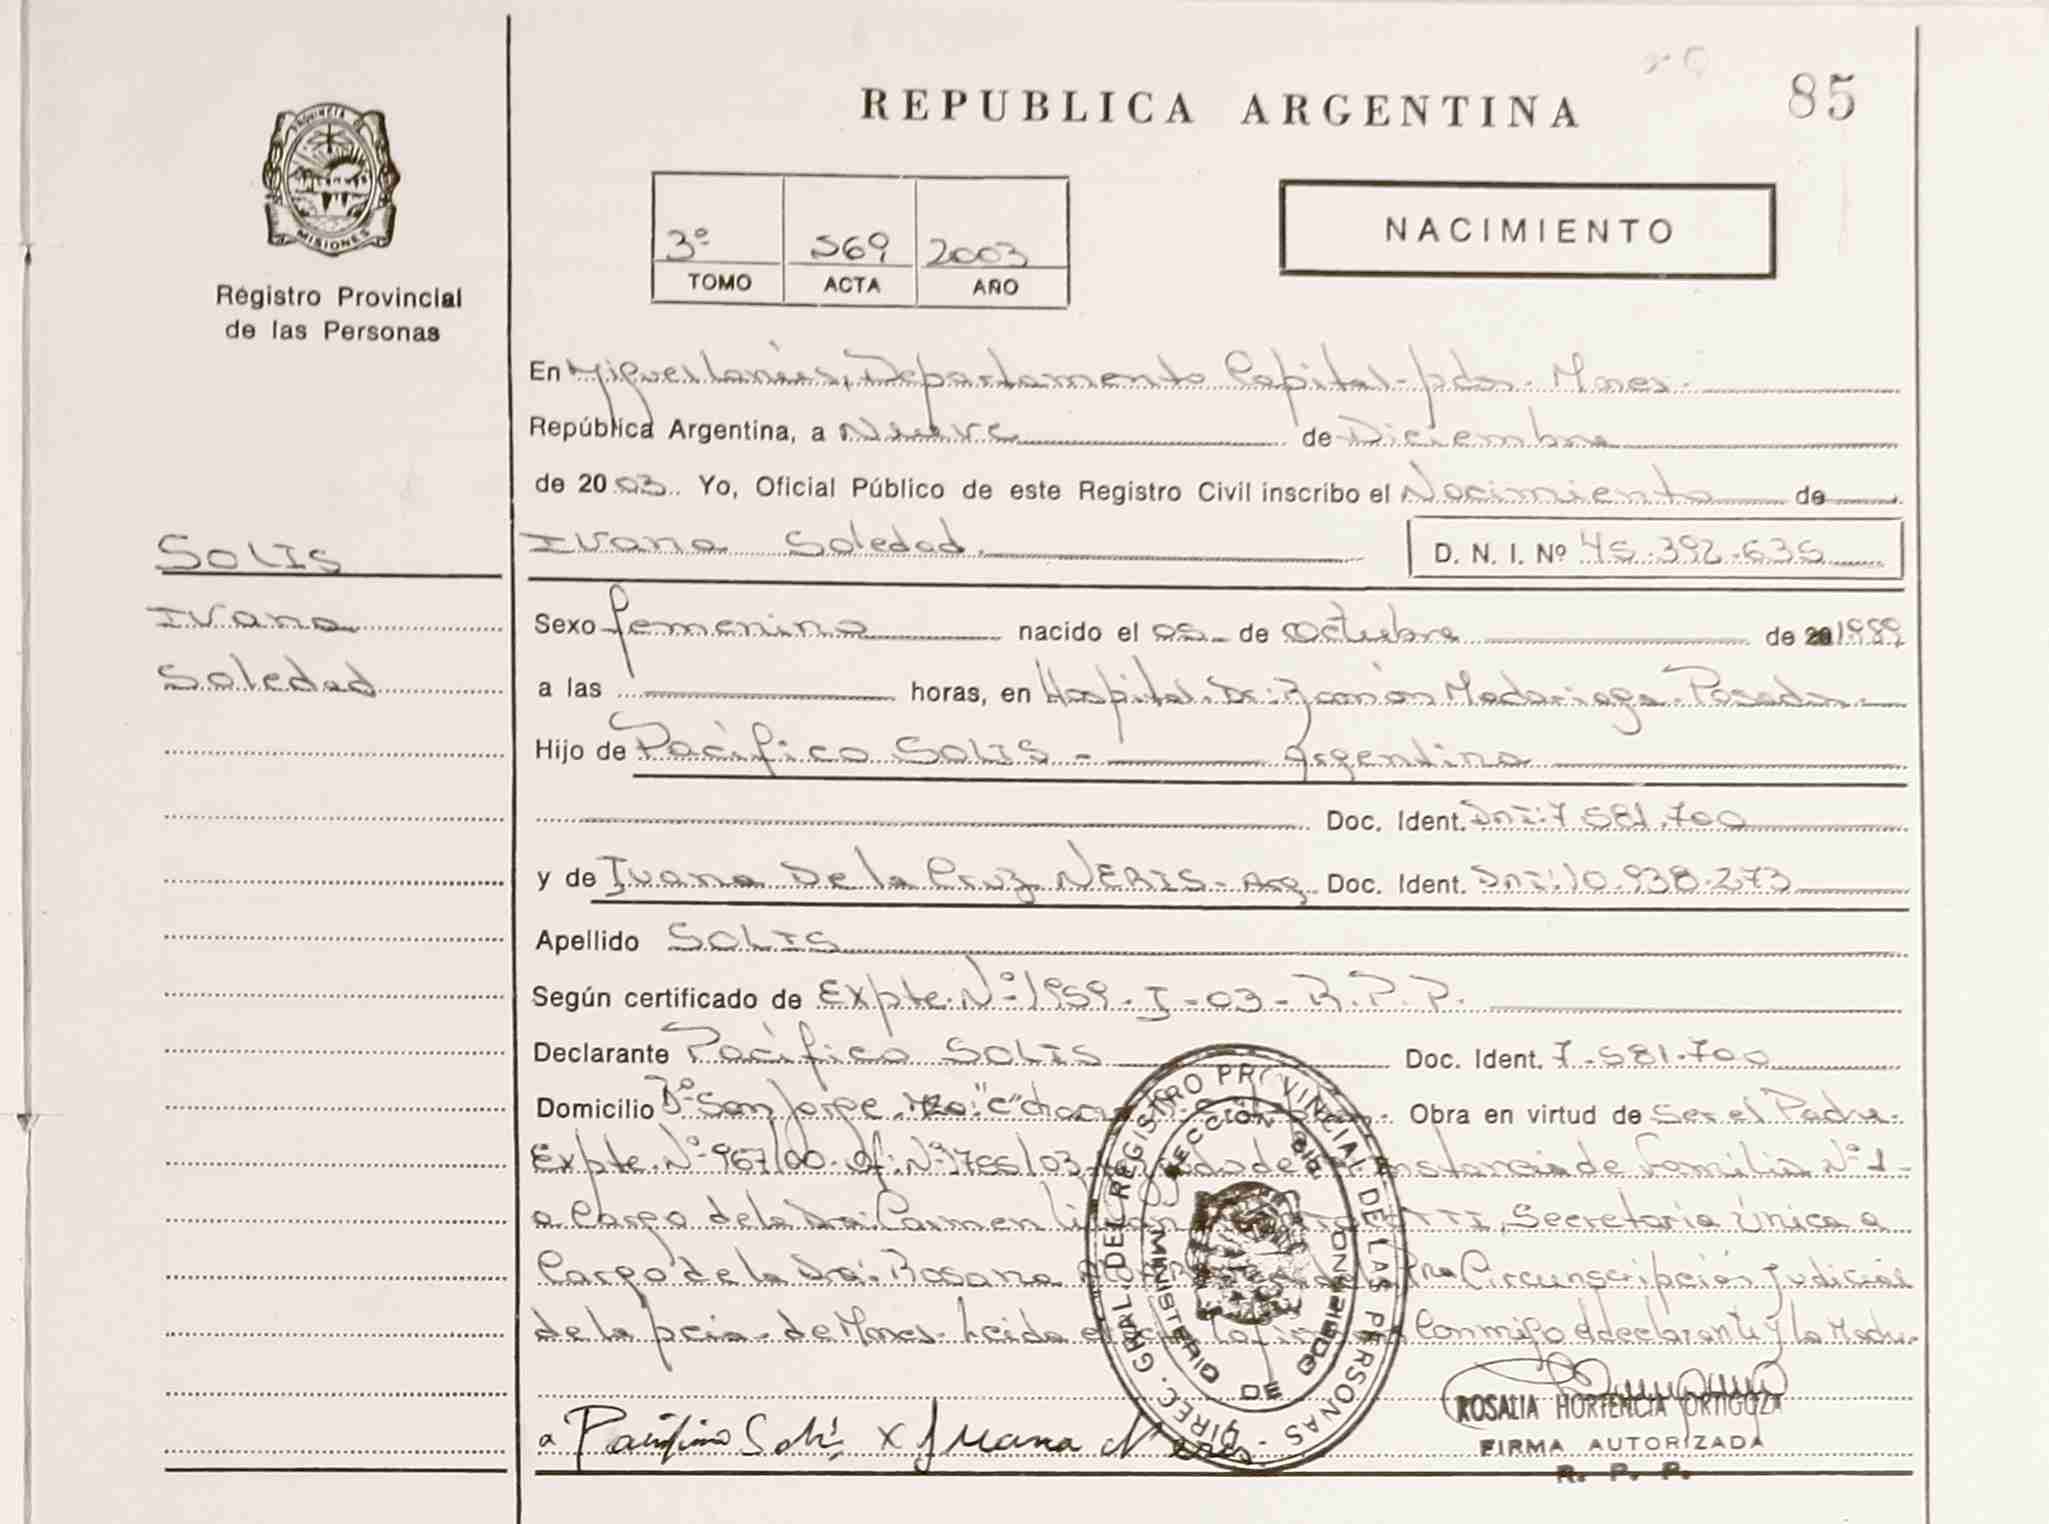 85
REPUBLICA ARGENTINA
PROVINCIA DE
MISIONES
Registro Provincial
de las Personas
3º 569 2003
TOMO ACTA AÑO
NACIMIENTO
En Miguel Lanús, Departamento Capital - pdas. Mnes.
República Argentina, a Nueve de Diciembre
de 2003. Yo, Oficial Público de este Registro Civil inscribo el Nacimiento de
SOLIS
Ivana
Soledad
Ivana Soledad. D. N. I. Nº 45.392.635
Sexo femenino nacido el 05 de Octubre de 1989
a las horas, en Hospital Dr. Ramón Madariaga - Posadas -
Hijo de Pacífico SOLIS - Argentina
Doc. Ident. DNI: 7.581.700
y de Juana De la Cruz NERIS - Arg. Doc. Ident. DNI: 10.938.273
Apellido SOLIS
Según certificado de Expte. Nº 1959 - I - 03 - R.P.P.
Declarante Pacífico SOLIS Doc. Ident. 7.581.700
Domicilio Bº San Jorge, Mza: "C" Obra en virtud de Ser el Padre.
Expte. Nº 967/00 - Of. Nº de Instancia de Familia Nº 1 -
a Cargo de la Dra. Carmen Secretaría Única a
Cargo de la Dra. Rosana de la 1ra Circunscripción Judicial
de la pcia. de Mnes. Leída el Conmigo el declarante y la Madre.
a Pacífico Solis x Juana N
DIREC. GRAL. DEL REGISTRO PROVINCIAL DE LAS PERSONAS -
MINISTERIO DE GOBIERNO
ROSALIA HORTENCIA ORTIGOZA
FIRMA AUTORIZADA
R. P. P.